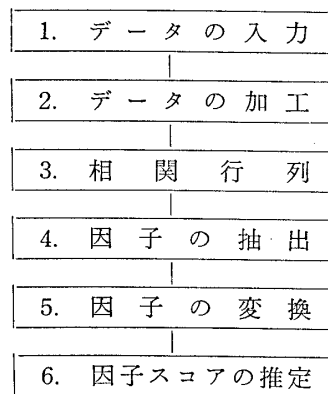 1. データの入力
2. データの加工
3. 相関行列
4. 因子の抽出
5. 因子の変換
6. 因子スコアの推定